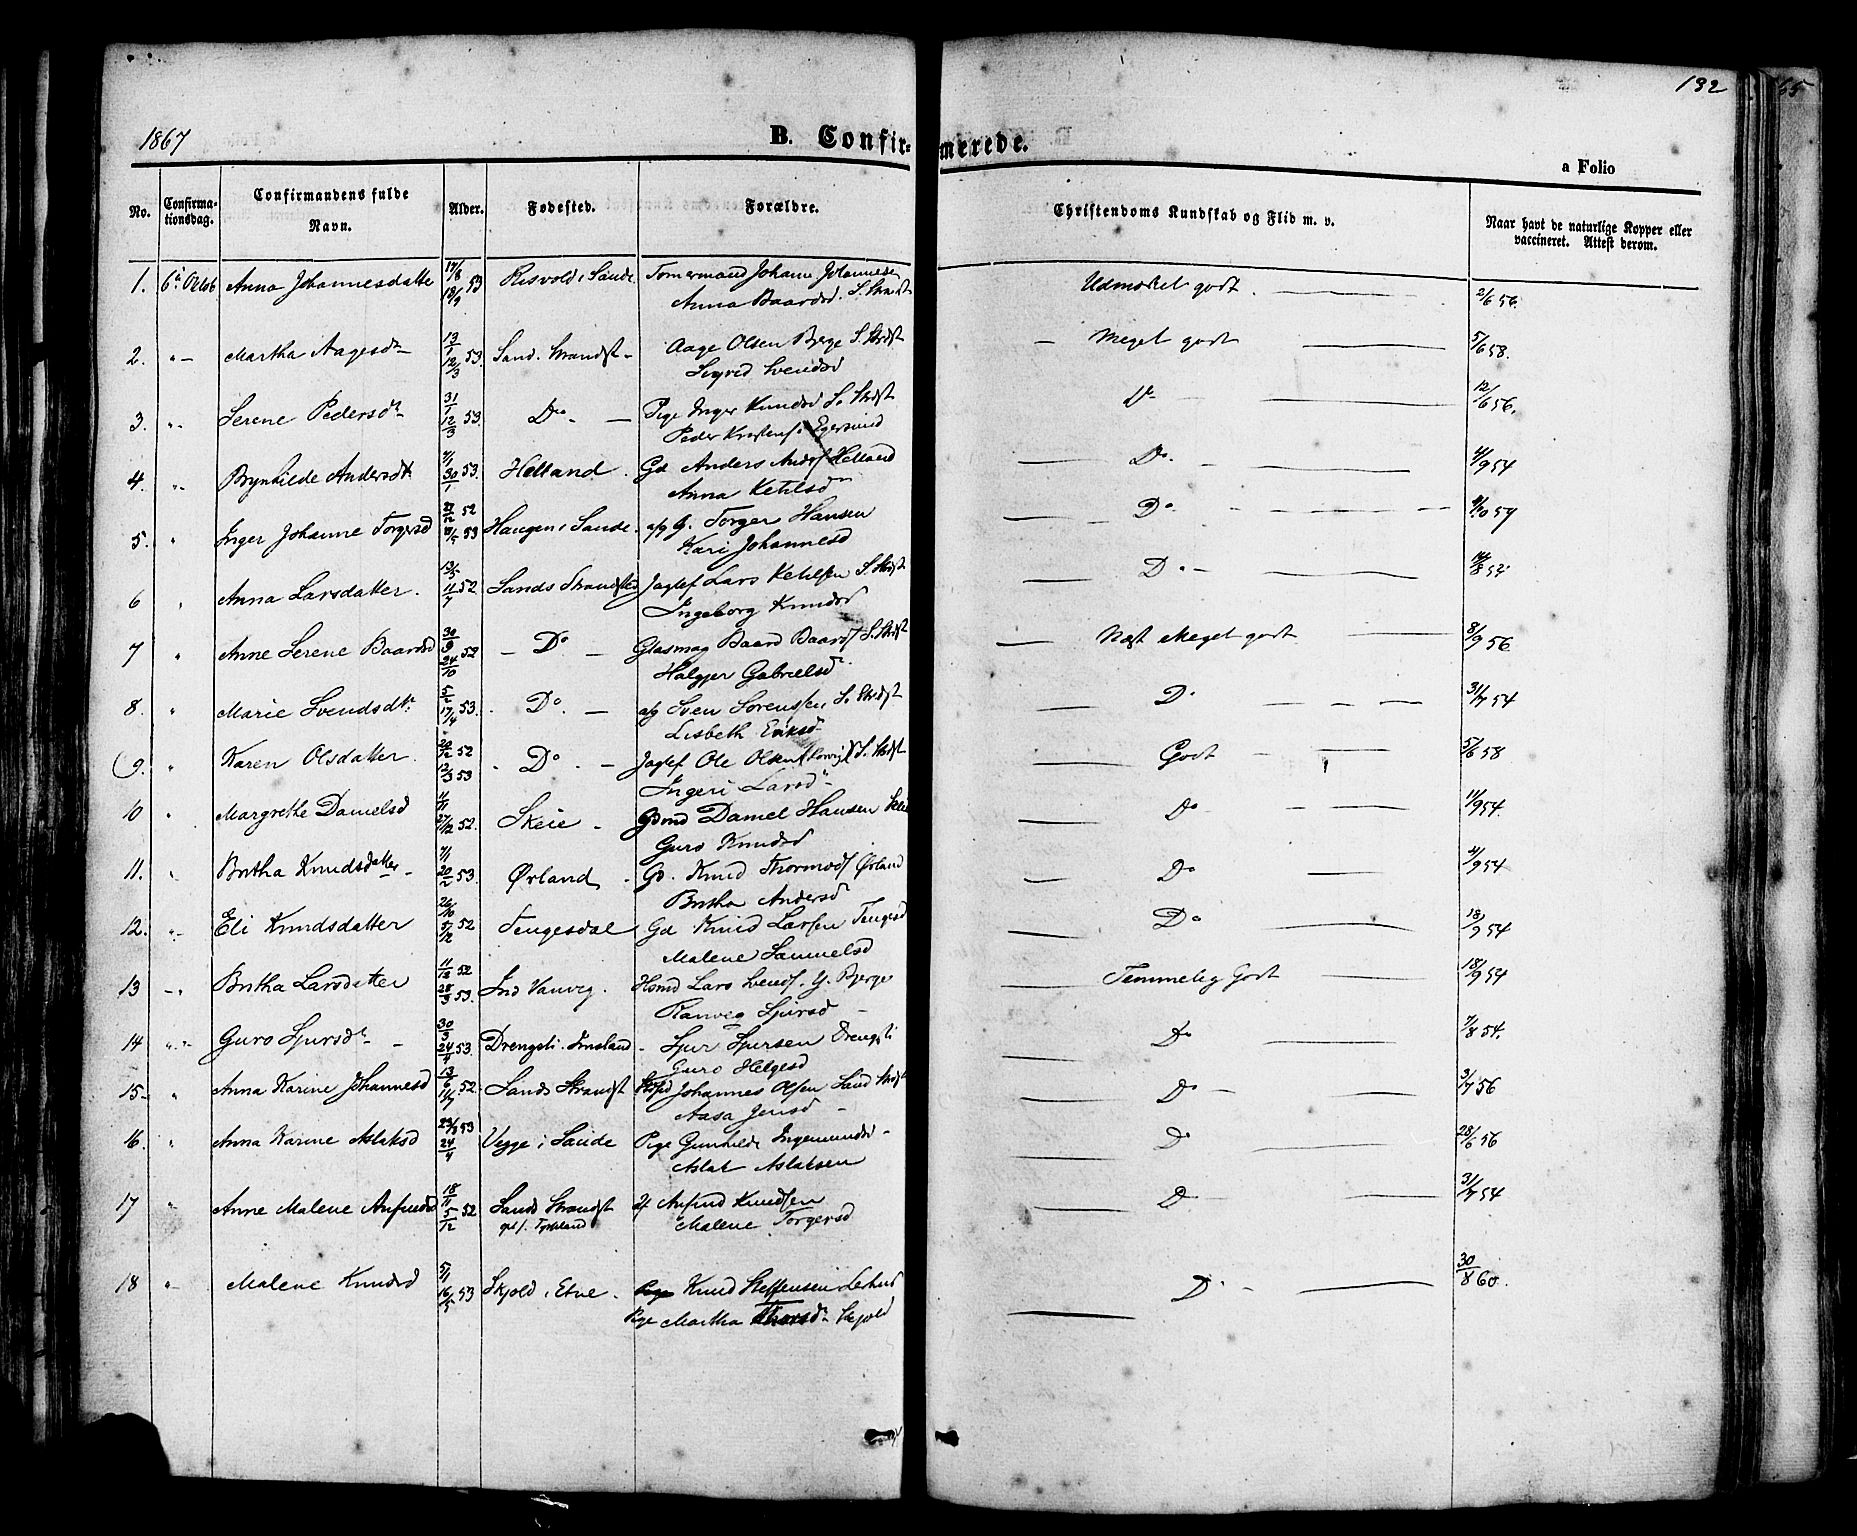 192
65
1867
B. Confir-
merede.
a Folio
No.
Confirma-
tionsdag.
Confirmandens fulde
Navn.
Alder.
Fødested.
Forældre.
Christendoms Kundskab og Flid m. v.
Naar havt de naturlige Kopper eller
vaccineret. Attest derom.
1. 6te Octob Anna Johannesdatte 17/8 18/9 53 Risvold i Sande Tømermand Johans Johannese Udmerket godt. 2/6 56.
Anna Baardsd. S. Strdst
2. " - Martha Aagesdtr 13/1 12/3 53. Sand. Strandst - Aage Olsen Berge S. Strdst Meget godt 5/6 58.
Sigrid Svendsd
3. " - Serene Pedersdr 31/1 12/3 53. Do - Pige Inger Knudsd S. Strdst Do 12/6 56.
Peder Egersund
4. " - Brynhilde Andersdtr 30/1 53. Helland. Gd Anders Andsf Helland Do. 4/9 54
Anna Ketilsd
5. " Inger Johanne Torgersd 52 53 Haugen i Sande. Torger Hansen Do
Kari Johannesd
6 " Anna Larsdatter. 11/7 52. Sands Strandsted Jagtef Lars Ketilsen S. Strdst Do - 54
Ingeborg Knudsd
7 " Anne Serene Baardsd 30/9 24/10 52 - Do - Glasmag Baard Baardsf S. Strdst Næst Meget godt 8/9 56
Gabrielsd
8. " Marie Svendsdtr 5/2 17/4 53. - Do. - Sven Sørensen S. Strdst Do 31/7 54
Lisbeth Eriksd
9. " Karen Olsdatter. 52 12/3 53 - Do - Jagtef Ole Olsen S. Strdst Godt 5/6 58
Ingeri Larsd
10 " Margrethe Danielsd 11/11 27/12 52. Skeie - Gdmd Daniel Hansen Skeie Do 11/9 54.
Guro Knudsd
11. " Britha Knudsdatter - 20/2 53. Ørland. Gd. Knud Thormodsf Ørland Do 4/9 54
Britha Andersd
12. " - Eli Knudsdatter 26/10 5/12 52 Tengesdal Gd Knud Larsen Tengesd Do 18/9 54
Malene Samuelsd
13 - " Britha Larsdatter 11/12 52 28/3 53. Ind Vanveg. Hsmd Lars Svendsf. Berge Temmelig Godt 18/9 54
Ranveg Sjursd -
14 " - " Guro Sjursdr - 30/3 24/4 53. Drengsti. Imsland - Sjur Sjursen Drengsti Do 7/8 54.
Guro Helgesd
15 - " Anna Karine Johannesd 13/6 11/7 52. Sands Strandst Johannes Olsen Sand Strdst Do - 3/7 56
Aasa Jensd -
16. " Anna Karine Aslaksd 53 24/4 Vegge i Sande Pige Gunhilde Ingemundsd - Do 28/6 56
Aslak Aslaksen
17 " Anne Malene Anfindsd 18/11 5/12 52 Sands Strandst Anfind Knudsen Do 31/7 54
Malene Torgersd
18 " - Malene Knudsd 5/1 16/5 53 Skjold i Etne. Knud Steffensen Do - 30/8 60.
Pige Martha Thorsdr Skjold